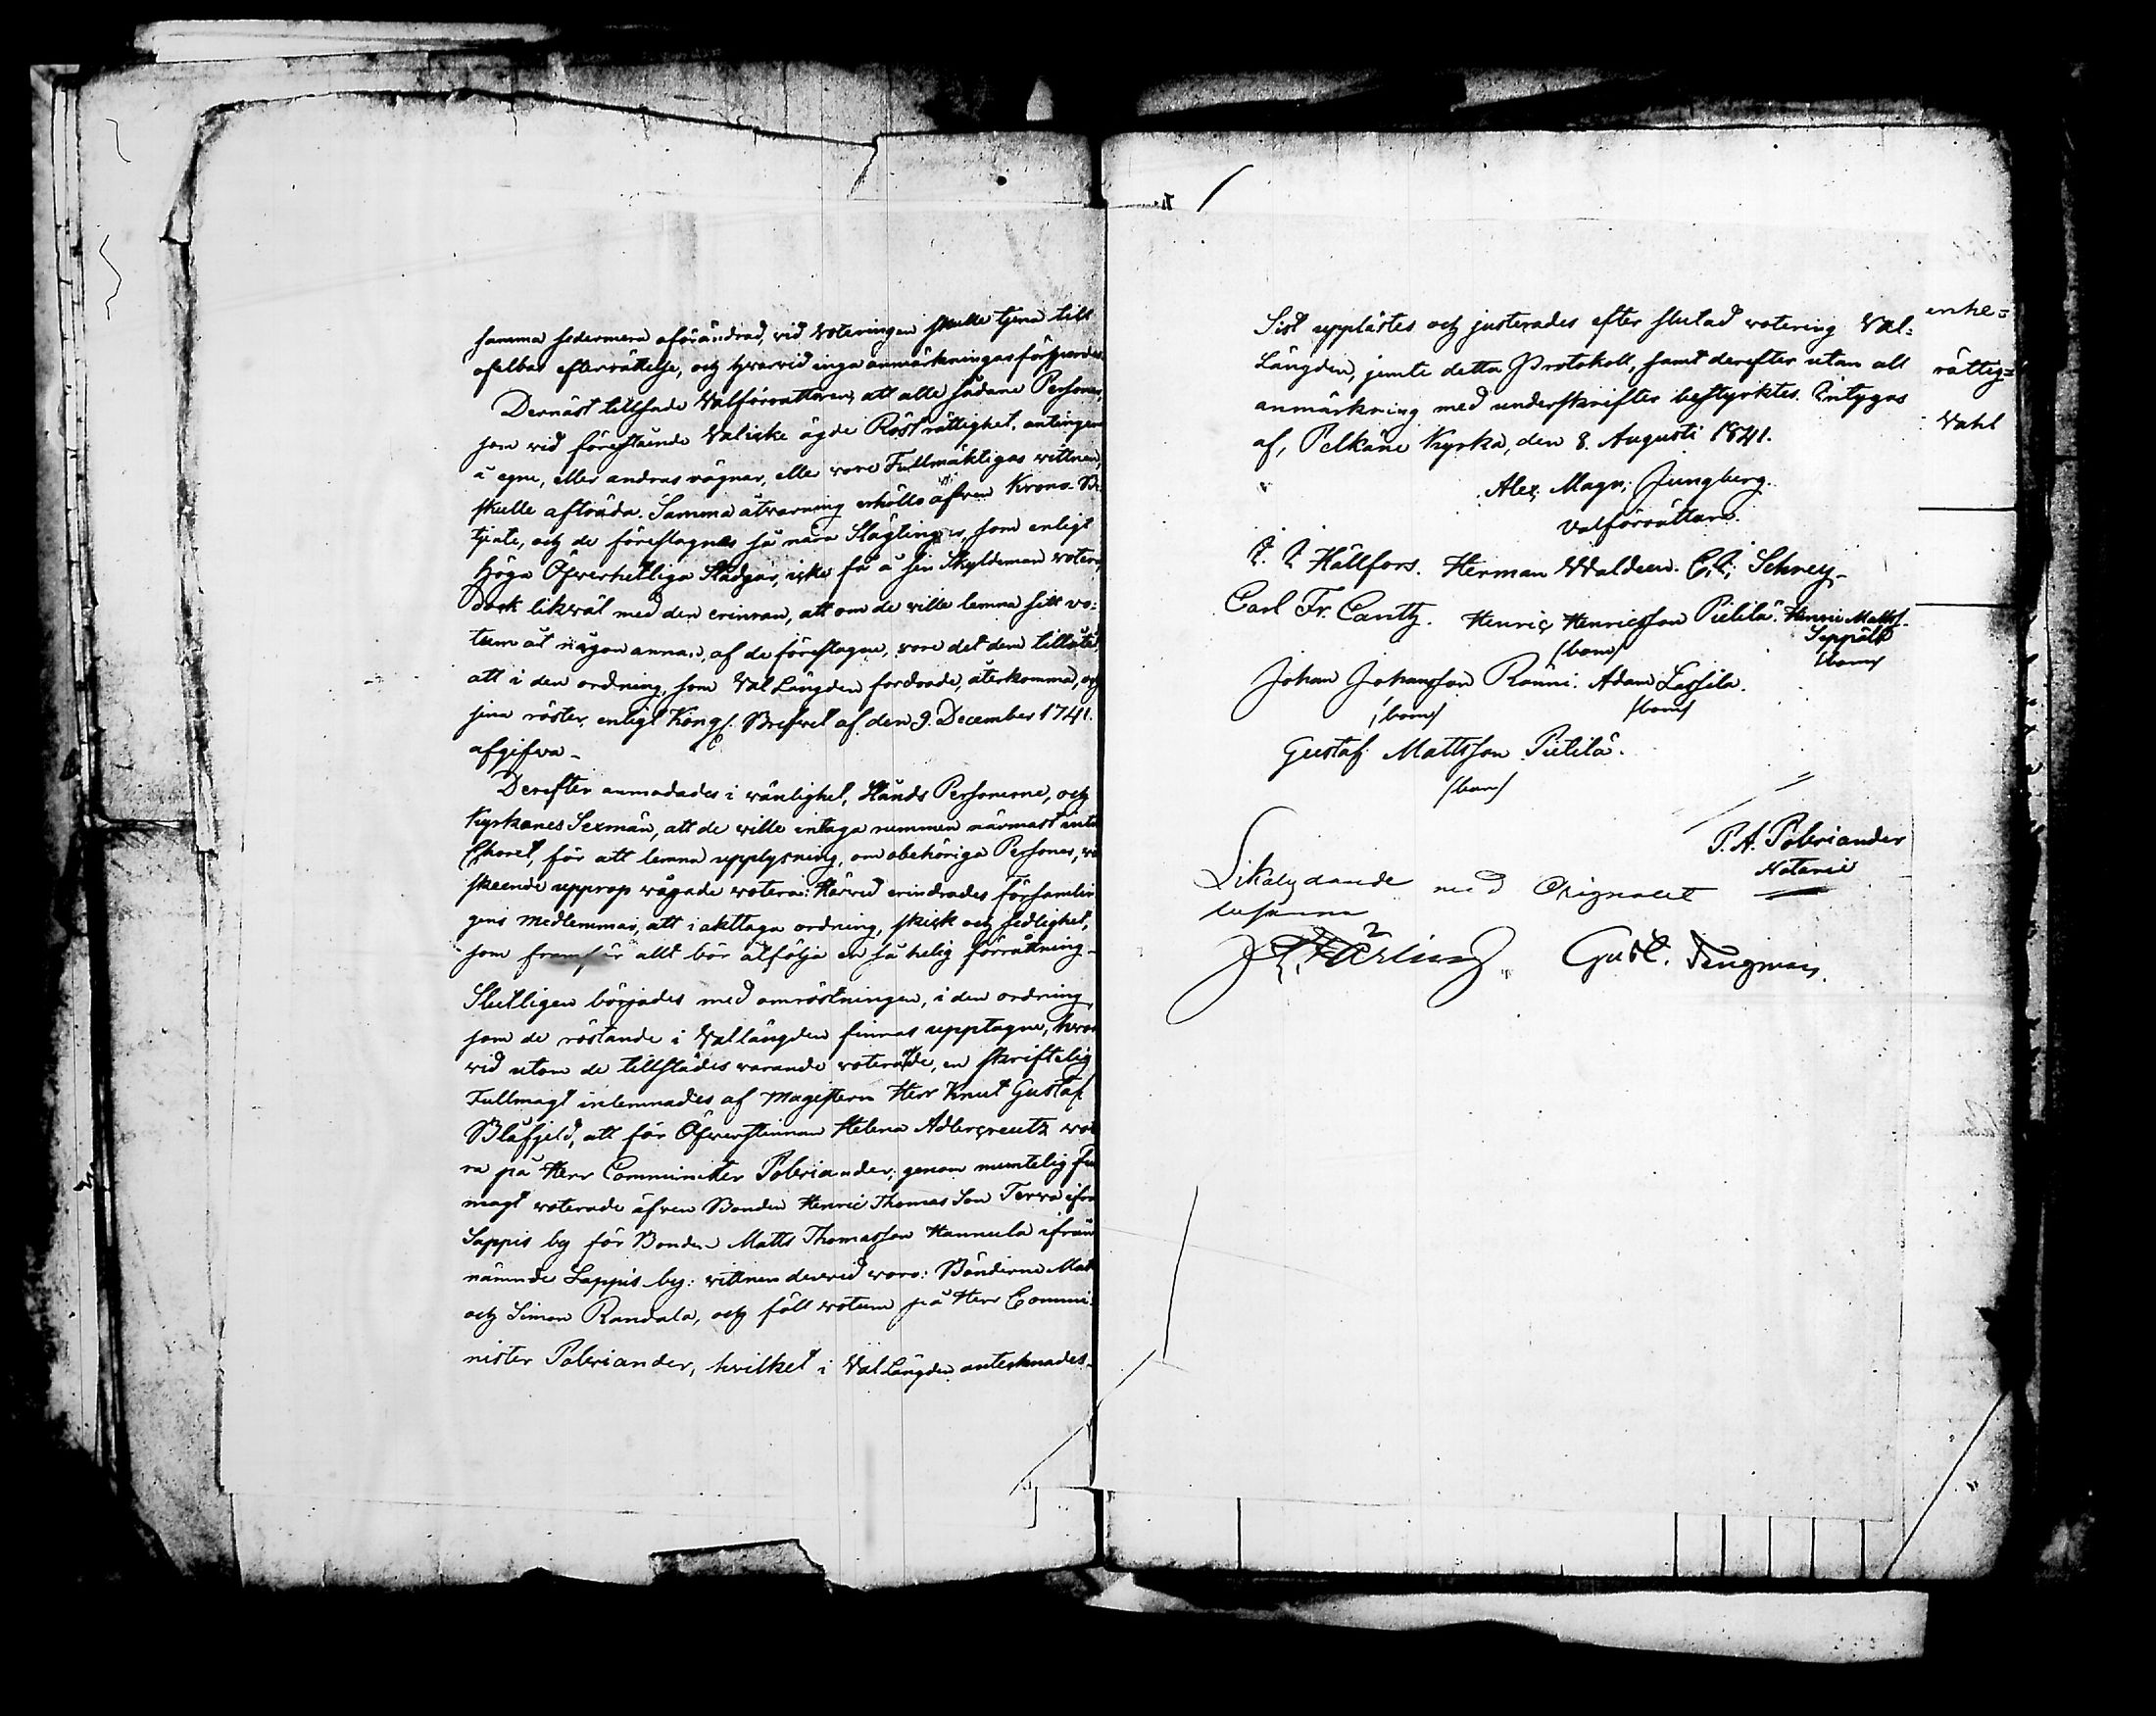 samma sedermera oförändrad, vid Voteringen skulle tjena till
ofelbar efterrättelse, och hvarvid inga anmärkningar förspordes.
Dernäst tillsade Valförrättaren, att alla sådane Personer,
som vid förestående Val icke ägde Rösträttighet, antingen
å egne, eller andras vägnar, eller vore Fullmäktigas vittnen,
skulle afträda. Samma åtvarning erhöllo äfven Krono-Be-
tjente, och de föreslagnas så nära Slägtingar, som enligt
Höga Öfverhetliga Stadgar, icke få å sin Skyldeman votera,
dock likväl med den erinran, att om de ville lemna sitt vo-
tum åt någon annan, af de föreslagne, vore det dem tillåtet,
att i den ordning, som ValLängden fordrade, återkomma, och
sina röster, enligt Kongl. Brefvet af den 9. December 1741.
afgifva.
Derefter anmodades i vänlighet, Stånds Personerne, och
Kyrkones Sexmän, att de ville intaga rummen närmast intill
Choret, för att lemna upplysning, om obehöriga Personer, vid
skeende upprop vågade votera: Härvid erindrades församlin-
gens medlemmar, att i akttaga ordning, skick och sedlighet,
som framför allt bör åtfölja en så helig förrättning.
Slutligen börjades med omröstningen, i den ordning
som de röstande i Vallängden finnas upptagne, hvar
vid utom de tillstädes varande voterande, en skriftelig
Fullmagt inlemnades af Magistern Herr Knut Gustaf
Blåfjeld, att för Öfverstinnan Helena Adlercreutz vote
ra på Herr Comminister Polviander; genom muntelig full
magt voterade äfven Bonden Henric Thomas Son Terra ifrån
Sappis by för Bonden Matts Thomasson Hannula ifrån
nämnde Sappis by: vittnen dervid voro: Bönderne Matts
och Simon Randala, och föll votum på Herr Commi-
nister Polviander, hvilket i ValLängden antecknades.
Sist upplästes och justerades efter slutad votering Val-
Längden, jemte detta Protokoll, samt derefter utan all
anmärkning med underskrifter bestyrktes. Intygas
af, Pelkäne Kyrka, den 8. Augusti 1841.
Alex. Magn. Jungberg.
Valförrättare.
Hällfors. Herman Waldeen. Schrey.
Carl Fr. Cantz. Henric Henricsson Pietilä. Henric Matts.
Seppälä
(bom)
(bom)
Johan Johansson Rönni. Adam Lassila.
(bom) (bom)
Gustaf Mattsson Pietilä.
(bom)
P. A. Polviander
Notarie
Likalydande med Originalet
Gust. Tengman.
enhe-
rättig-
Vahl